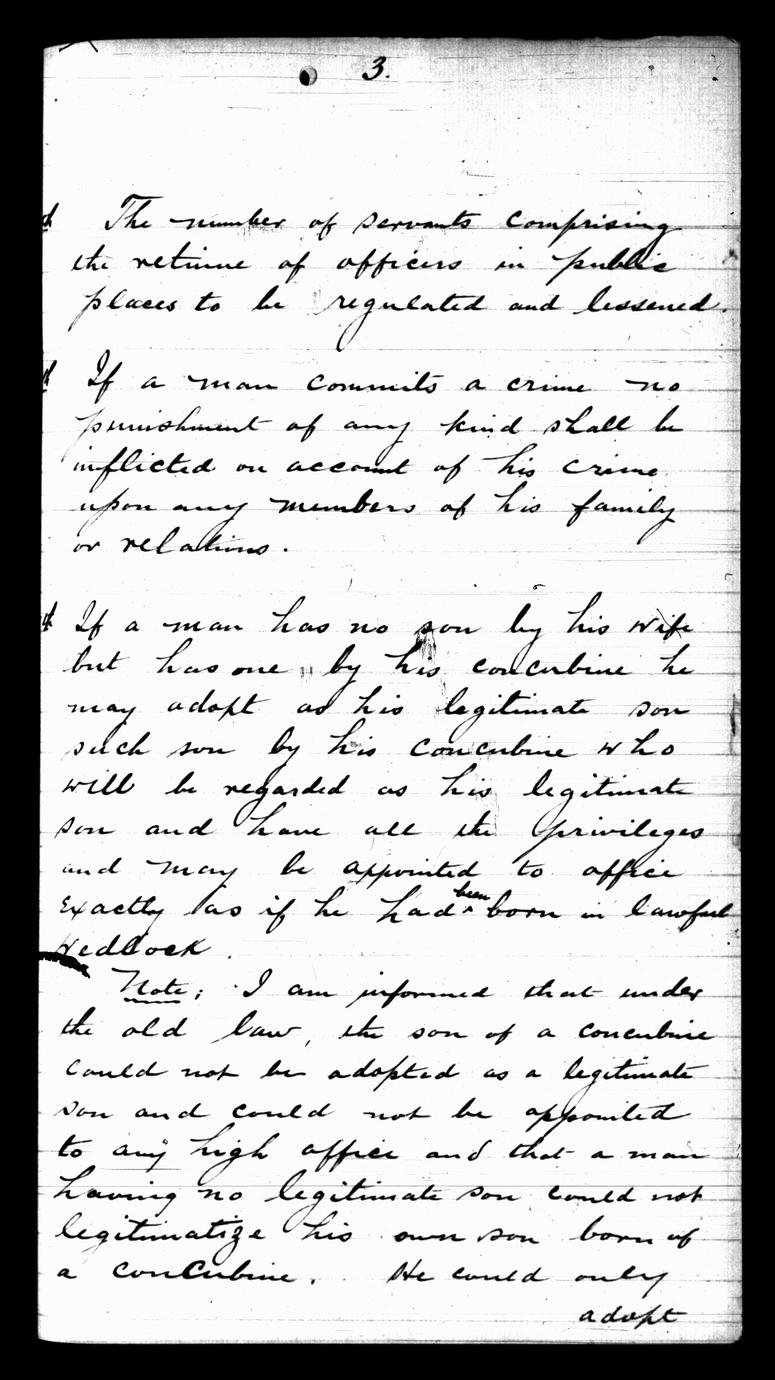 3.
The number of servants comprising
the retinue of officers in public
places to be regulated and lessened.
If a man commits a crime no
punishment of any kind shall be
inflicted on account of his crime
upon any members of his family
or relations.
If a man has no son by his wife
but has one by his concubine he
may adopt as his legitimate son
such son by his concubine who
will be regarded as his legitimate
son and have all the privileges
and may be appointed to office
exactly as if he had been born in lawful
Wedlock.
Note: I am informed that under
the old law, the son of a concubine
could not be adopted as a legitimate
son and could not be appointed
to any high office and that a man
having no legitimate son could not
legitimatize his own son born of
a concubine. He could only
adopt